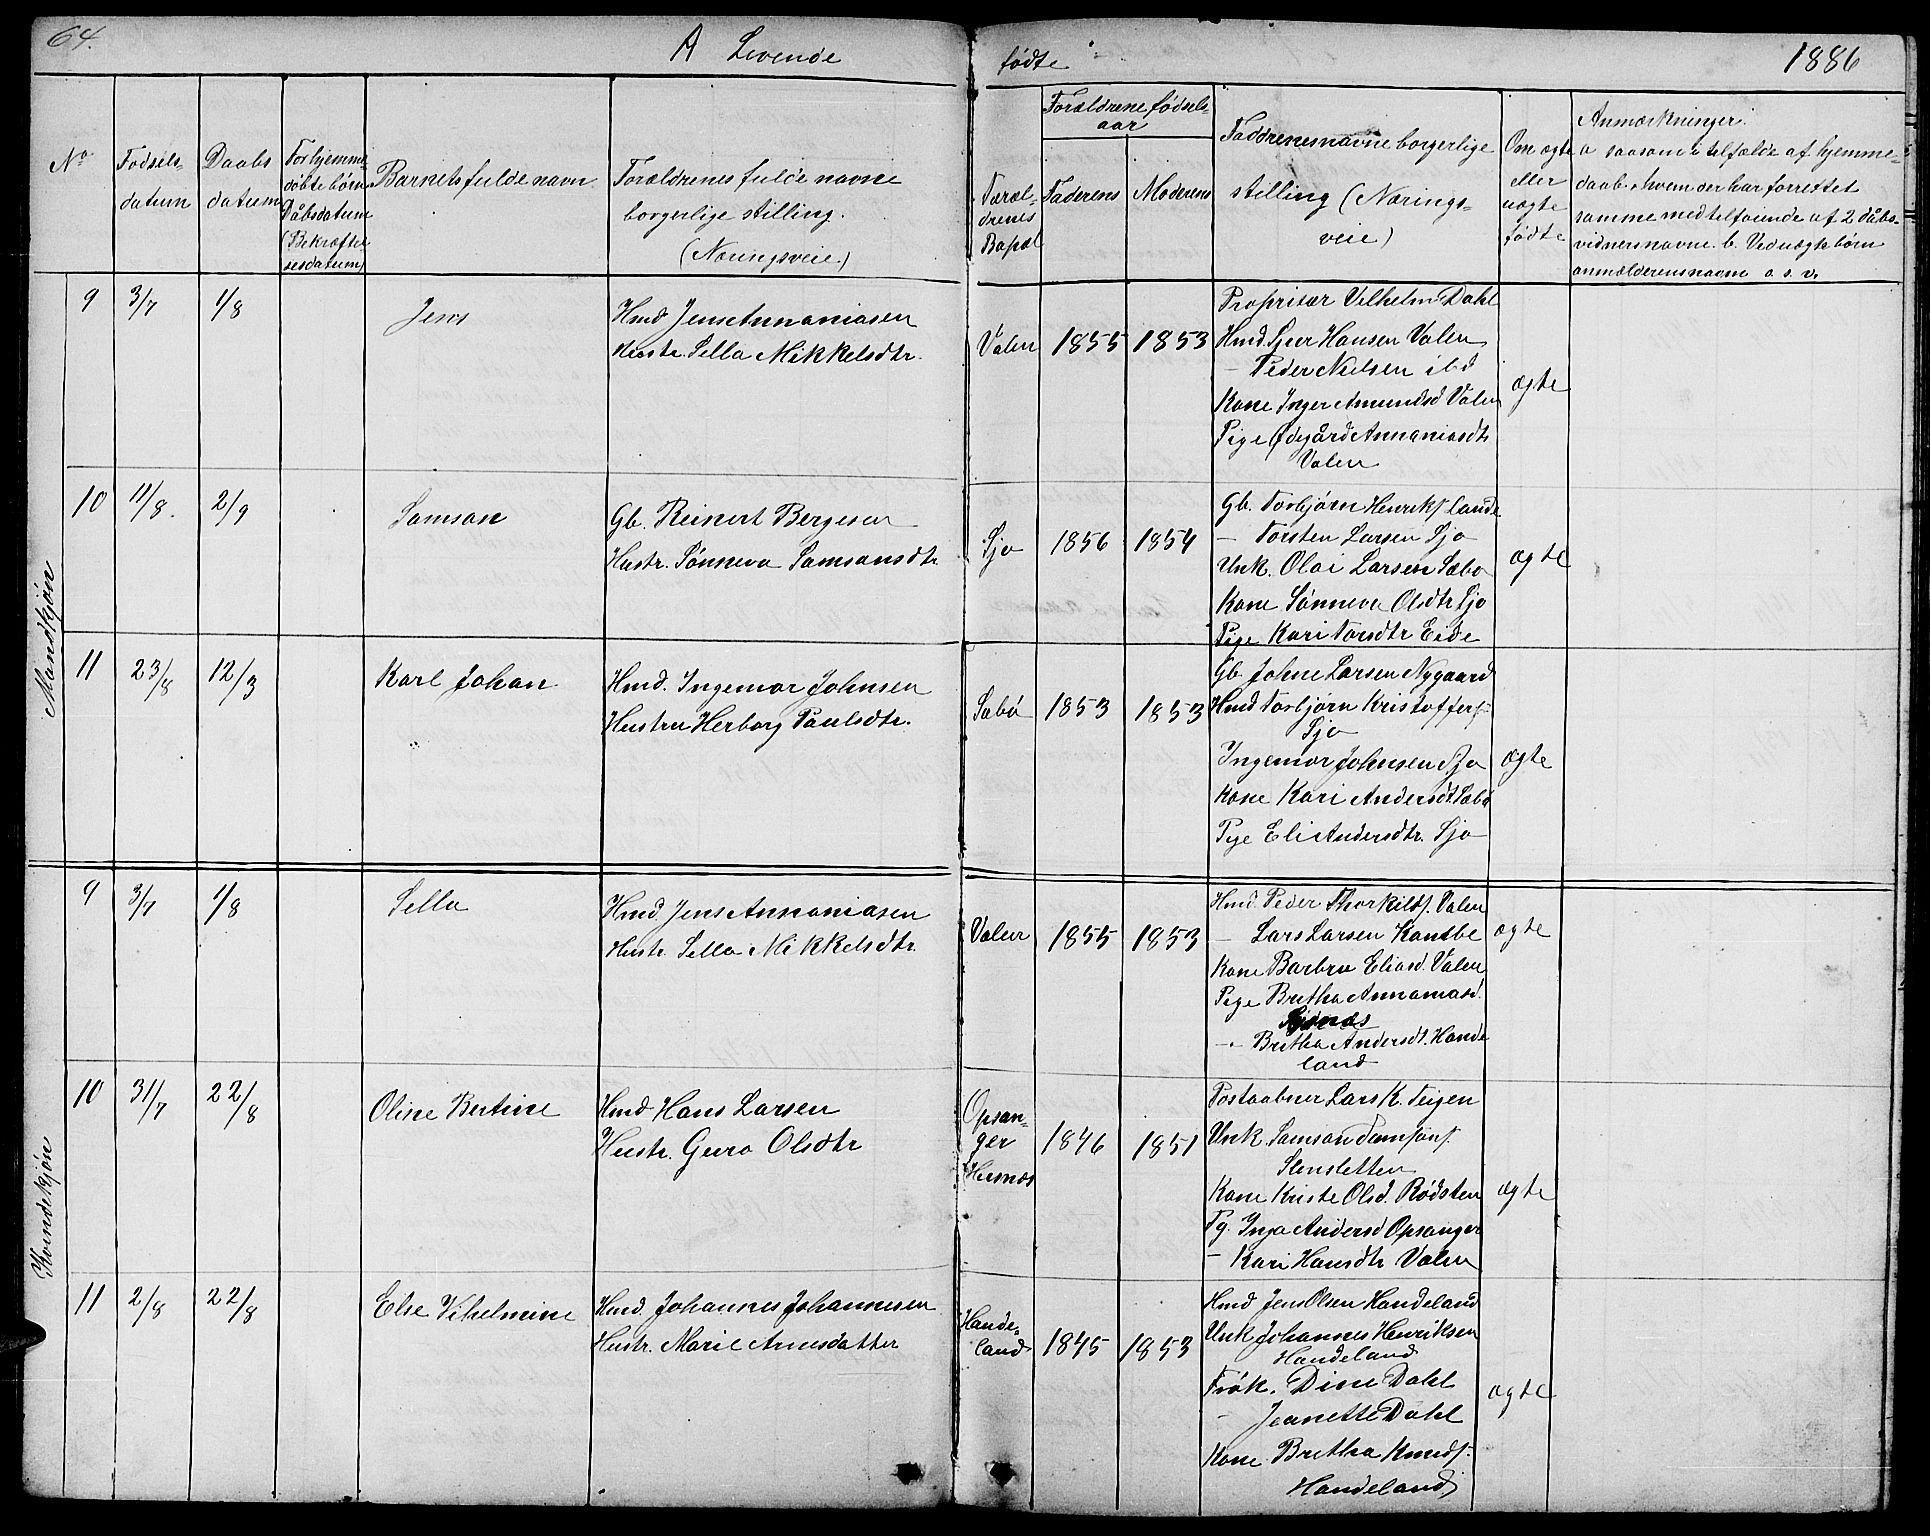 64.
A Levende
fødte
1886
No
Fødsels-
datum
Daabs
datum
For hjemme
døbte børn
Dåbsdatum
(Bekræftel
sesdatum)
Barnets fulde navn
Forældrenes fulde navne
borgerlige stilling.
(Næringsveie.)
Foræl-
drenes
Bopæl
Forældrene fødsels-
aar
Faderens
Moderens
Faddrenes navne borgerlige
stilling (Nærings-
veie)
Om ægte
eller
uægte
fødte
Anmærkninger.
a saasom i tilfælde af hjemme-
daab, hvem der har forrettet
samme med tilføiende af 2 dåbs-
vidners navne. b. Ved uægte børn
anmælderens navn o. s. v.
Mandkjøn
9 3/7 1/8 Jens
Hmd. Jens Annaniasen
Hustr. Sella Mikkelsdtr.
Valen 1855 1853
Propritær Vilhelm Dahl
Hmd. Sjur Hansen Valen
— Peder Nielsen ibd
Kone Inger Amundsd Valen
Pige Ødegård Annaniasdtr
Valen
ægte
10 11/8. 2/9 Samson
Gb. Reinert Bergesen
Hustr. Sønneva Samsonsdtr.
Sjo 1856 1854
Gb. Torbjørn Henriks. lande
— Torsten Larsen Sjo
Unk. Olai Larsen Sæbo
Kone Sønneva Olsdtr Sjo
Pige Kari Torsdtr Eide
ægte
11 23/8 12/3 Karl Johan
Hmd. Ingemor Johnsen
Hustru Herborg Paulsdtr.
Sæbö 1853 1853
Gb. Johne Larsen Nygaard
Hmd Torbjørn Kristoffers.
Sjo
Ingemor Johnsen Sjo
Kone Kari Andersdt. Sæbö
Pige Eli Andersdtr. Sjo
ægte
Kvindekjøn
9 3/7 1/8 Sella
Hmd. Jens Annaniasen
Hustr. Sella Mikkelsdtr.
Valen 1855 1853
Hmd. Peder Thorkilds. Valen
— Lars Larsen
Kone Barbru Eliasd. Valen
Pige Britha Annaniasd.
— Britha Andersdt. Hande
land
ægte
10 31/7 22/8 Oline Bertine
Hmd Hans Larsen
Hustr. Guro Olsdtr
Opsan-
ger
Husnæs 1846 1851
Postaabner Lars K. Teigen
Unk. Samson Samsons.
Stensletten
Kone Kriste Olsd. Rødsten
Pg. Inga Andersd Opsanger
— Kari Hansdtr Valen
ægte
11 2/8 22/8 Else Vilhelmine
Hmd. Johannes Johannesen
Hustr. Marie Arnesdatter
Hande-
land 1845 1853
Hmd Jens Olsen Handeland
Unk Johannes Henriksen
Handeland
Frøk. Dine Dahl
— Jeanette Dahl
Kone Britha Knuds.
Handeland
ægte